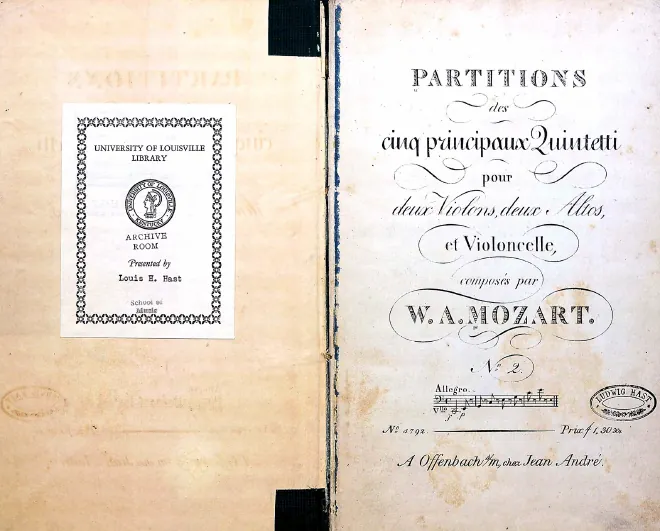 UNIVERSITY OF LOUISVILLE
LIBRARY
UNIVERSITY OF LOUISVILLE
KENTUCKY
ARCHIVE
ROOM
Presented by
Louis H. Hast
School of
Music
PARTITIONS
des
cinq principaux Quintetti
pour
deux Violons, deux Altos,
et Violoncelle,
composés par
W. A. MOZART.
Nº 2.
Allegro.
Vllo
Nº 4792.
Prix f 1, 30 Xr.
A Offenbach s/m, chez Jean André.
LUDWIG HAST